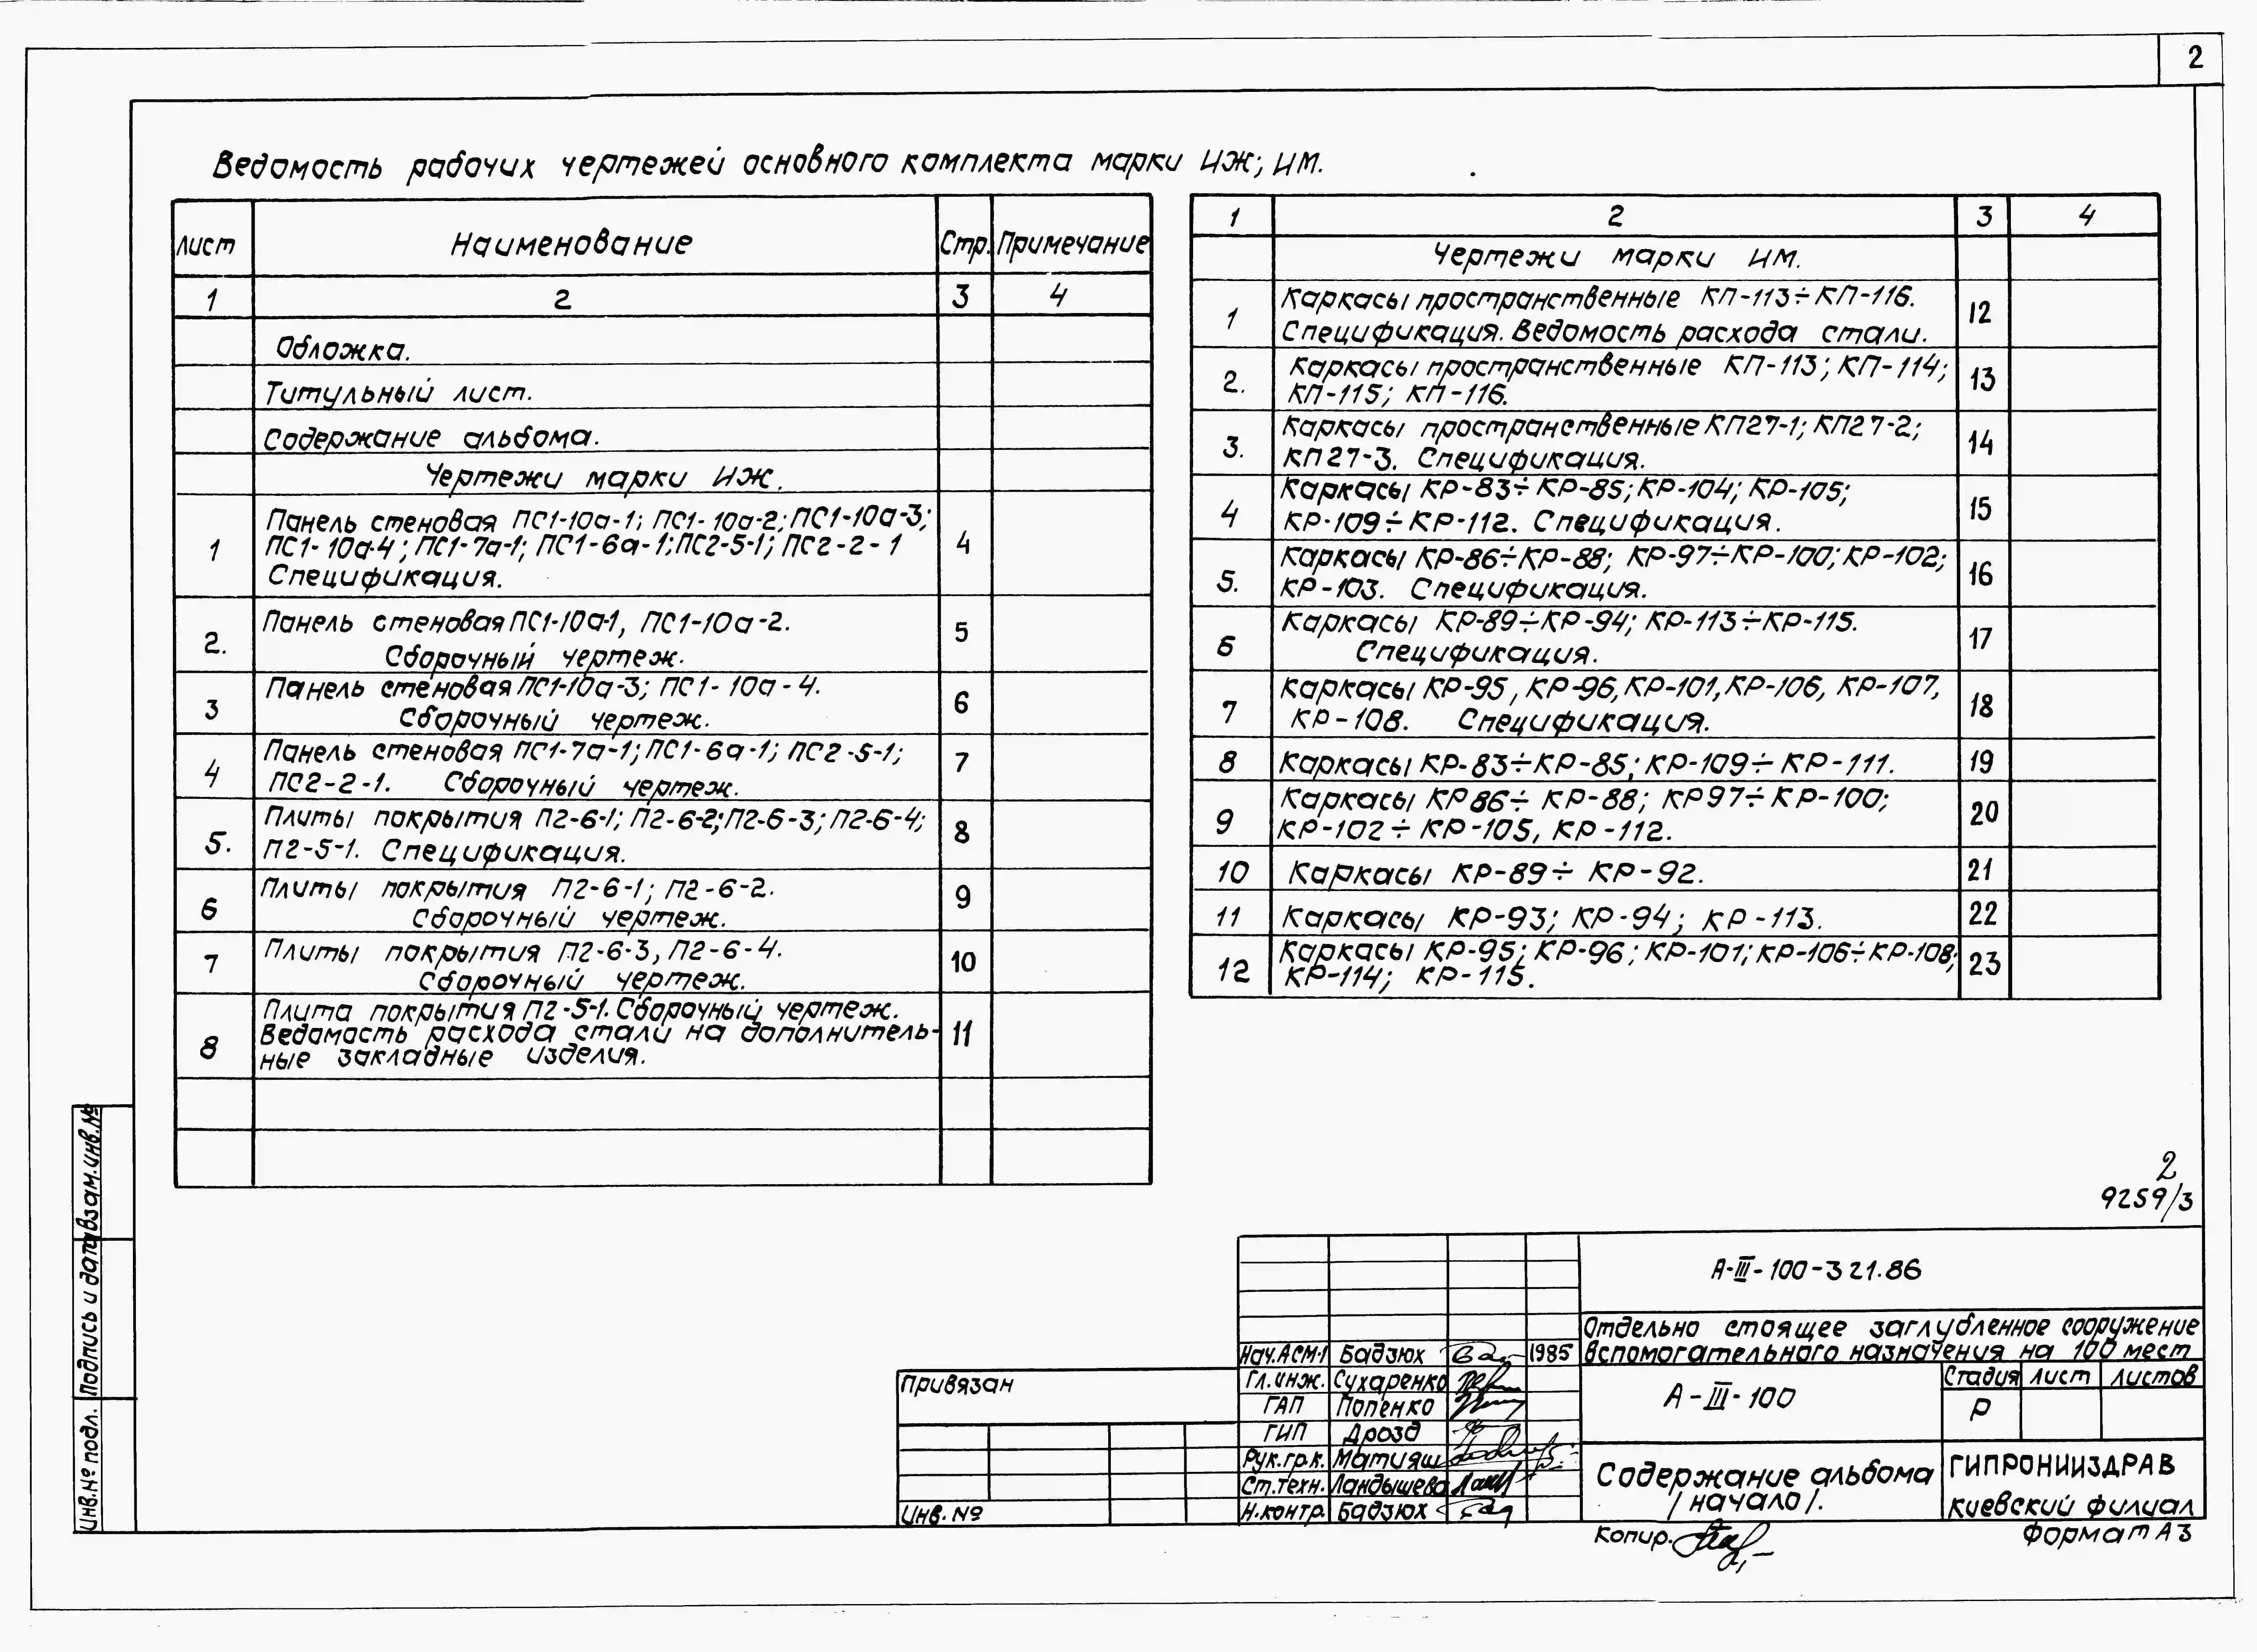 2
Ведомость рабочих чертежей основного комплекта марки ИЖ; ИМ.
Лист Наименование Стр. Примечание
1 2 3 4
Обложка.
Титульный лист.
Содержание альбома.
Чертежи марки ИЖ.
1 Панель стеновая ПС1-10а-1; ПС1-10а-2; ПС1-10а-3;
ПС1-10а-4; ПС1-7а-1; ПС1-6а-1; ПС2-5-1; ПС2-2-1 4
Спецификация.
2. Панель стеновая ПС1-10а-1, ПС1-10а-2. 5
Сборочный чертеж.
3 Панель стеновая ПС1-10а-3; ПС1-10а-4. 6
Сборочный чертеж.
4 Панель стеновая ПС1-7а-1; ПС1-6а-1; ПС2-5-1; 7
ПС2-2-1. Сборочный чертеж.
5. Плиты покрытия П2-6-1; П2-6-2; П2-6-3; П2-6-4; 8
П2-5-1. Спецификация.
6 Плиты покрытия П2-6-1; П2-6-2. 9
Сборочный чертеж.
7 Плиты покрытия П2-6-3, П2-6-4. 10
Сборочный чертеж.
8 Плита покрытия П2-5-1. Сборочный чертеж.
Ведомость расхода стали на дополнитель- 11
ные закладные изделия.
1 2 3 4
Чертежи марки ИМ.
1 Каркасы пространственные КП-113÷КП-116. 12
Спецификация. Ведомость расхода стали.
2. Каркасы пространственные КП-113; КП-114; 13
КП-115; КП-116.
3. Каркасы пространственные КП27-1; КП27-2; 14
КП27-3. Спецификация.
4 Каркасы КР-83÷КР-85; КР-104; КР-105; 15
КР-109÷КР-112. Спецификация.
5. Каркасы КР-86÷КР-88; КР-97÷КР-100; КР-102; 16
КР-103. Спецификация.
6 Каркасы КР-89÷КР-94; КР-113÷КР-115. 17
Спецификация.
7 Каркасы КР-95, КР-96, КР-101, КР-106, КР-107, 18
КР-108. Спецификация.
8 Каркасы КР-83÷КР-85; КР-109÷КР-111. 19
9 Каркасы КР86÷КР-88; КР97÷КР-100; 20
КР-102÷КР-105, КР-112.
10 Каркасы КР-89÷КР-92. 21
11 Каркасы КР-93; КР-94; КР-113. 22
12 Каркасы КР-95; КР-96; КР-101; КР-106÷КР-108; 23
КР-114; КР-115.
2
9259/3
А-III-100-321.86
Отдельно стоящее заглубленное сооружение
вспомогательного назначения на 100 мест
А-III-100
Стадия Лист Листов
Р
Содержание альбома
/начало/.
ГИПРОНИИЗДРАВ
киевский филиал
Нач.АСМ-1 Бадзюх 1985
Гл.инж. Сухаренко
ГАП Попенко
ГИП Дрозд
Рук.гр.к. Матияш
Ст.техн. Ландышева
Н.контр. Бадзюх
Привязан
Инв.№
Копир.
Формат А3
Взам.инв.№
Подпись и дата
Инв.№ подл.